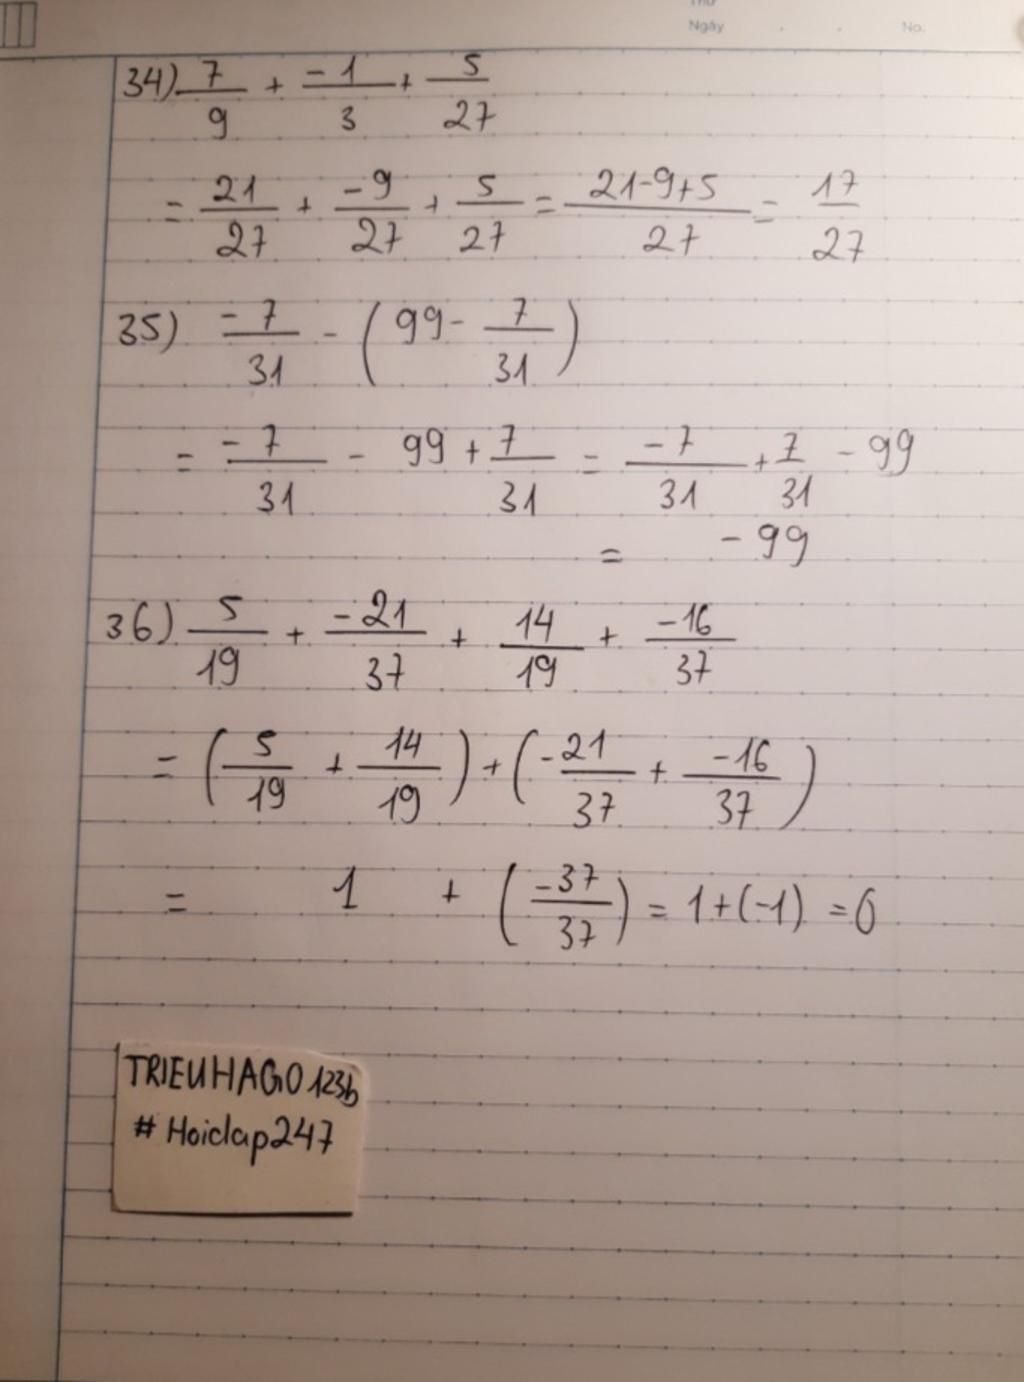 Thứ
Ngày . . No.
34) 7/9 + -1/3 + 5/27
= 21/27 + -9/27 + 5/27 = 21-9+5/27 = 17/27
35) -7/31 - (99 - 7/31)
= -7/31 - 99 + 7/31 = -7/31 + 7/31 - 99
= - 99
36) 5/19 + -21/37 + 14/19 + -16/37
= (5/19 + 14/19) + (-21/37 + -16/37)
= 1 + (-37/37) = 1+(-1) = 0
TRIEUHAGO123b
# Hoidap247